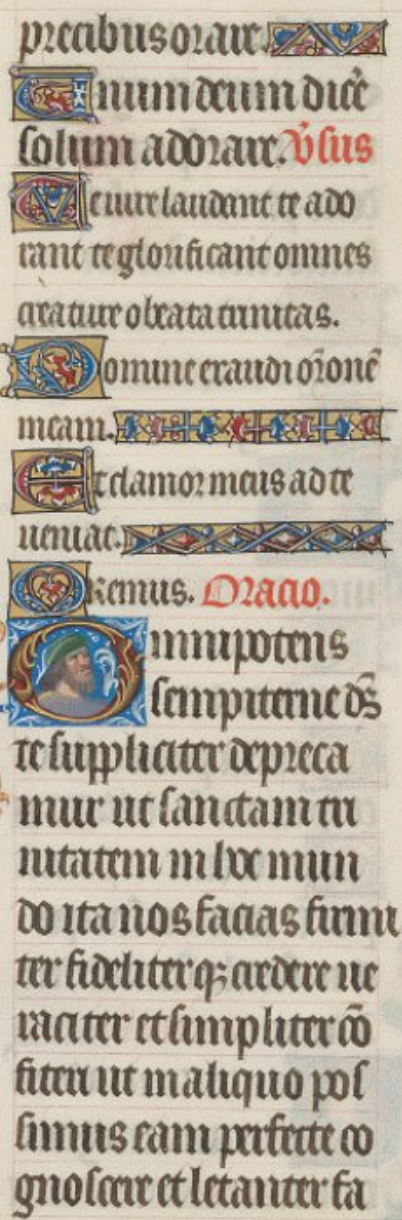 precibus orare.
Unum deum dicẽ
solum adorare. V̓sus
Te iure laudant te ado
rant te glorificant omnes
creature o beata trinitas.
Domine exaudi or̃onẽ
meam.
Et clamor meus ad te
ueniat.
Oremus. Oracio.
Omnipotens
sempiterne ds̃
te suppliciter depreca
mur ut sanctam tri
nitatem in hoc mun
do ita nos facias firmi
ter fideliterqꝫ credere ue
raciter et simpliter cõ
fiteri ut in aliquo pos
simus eam perfecte co
gnoscere et letanter fa